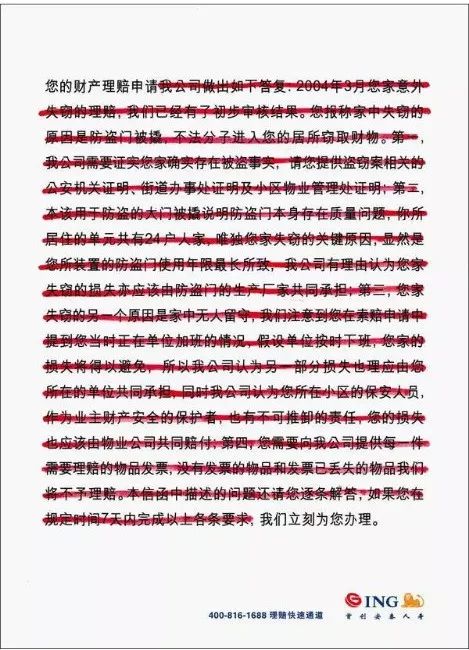 您的财产理赔申请我公司做出如下答复：2004年3月您家意外
失窃的理赔，我们已经有了初步审核结果。您报称家中失窃的
原因是防盗门被撬，不法分子进入您的居所窃取财物。第一，
我公司需要证实您家确实存在被盗事实，请您提供盗窃案相关的
公安机关证明、街道办事处证明及小区物业管理处证明；第二，
本该用于防盗的大门被撬说明防盗门本身存在质量问题，你所
居住的单元共有24户人家，唯独您家失窃的关键原因，显然是
您所装置的防盗门使用年限最长所致，我公司有理由认为您家
失窃的损失亦应该由防盗门的生产厂家共同承担；第三，您家
失窃的另一个原因是家中无人留守，我们注意到您在索赔申请中
提到您当时正在单位加班的情况，假设单位按时下班，您家的
损失将得以避免，所以我公司认为另一部分损失也理应由您
所在的单位共同承担，同时我公司认为您所在小区的保安人员，
作为业主财产安全的保护者，也有不可推卸的责任，您的损失
也应该由物业公司共同赔付；第四，您需要向我公司提供每一件
需要理赔的物品发票，没有发票的物品和发票已丢失的物品我们
将不予理赔。本信函中描述的问题还请您逐条解答；如果您在
规定时间7天内完成以上各条要求，我们立刻为您办理。
ING
首创安泰人寿
400-816-1688 理赔快速通道